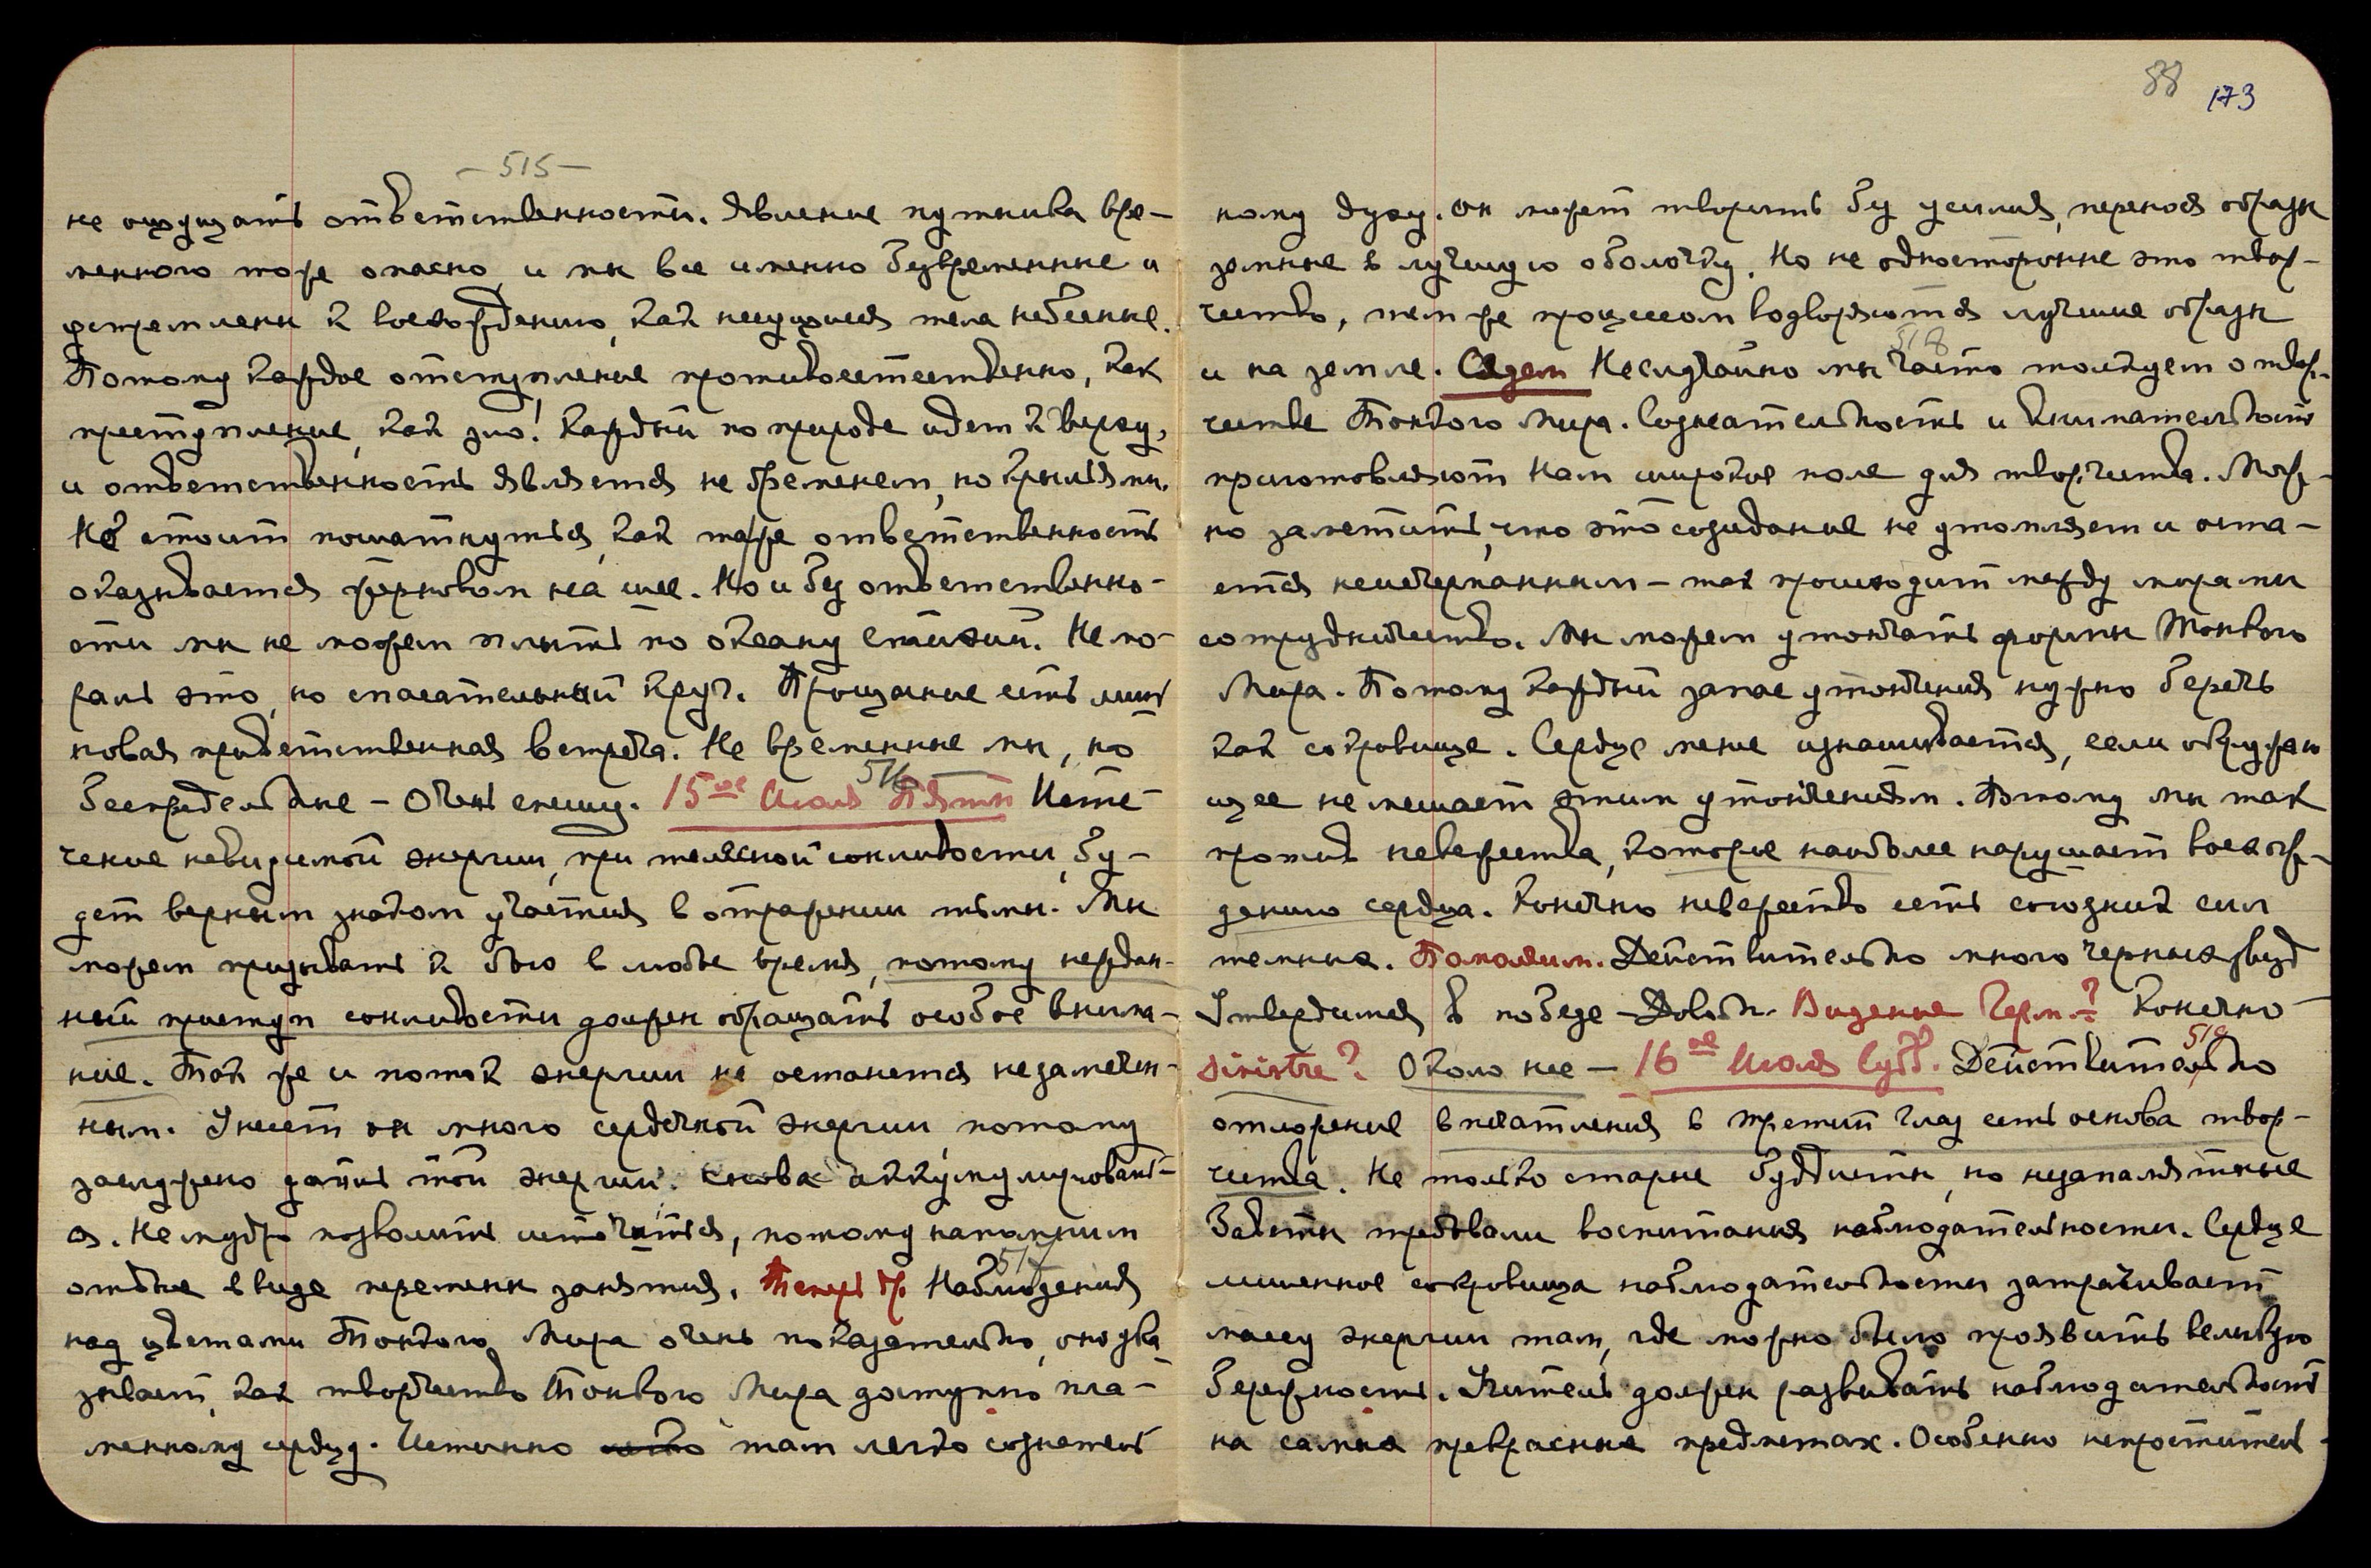 – 515 –
не ощущать ответственности. Явление путника вре-
менного тоже опасно, и мы все именно безвременные и
устремлены к восхождению, как несущiеся тела небесные.
Потому каждое отступление противоестественно, как
преступление, как зло! Каждый по природе идет к верху,
и ответственность является не бременем, но крыльями.
Но стоит пошатнуться, как та же ответственность
оказывается жерновом на шее. Но и без ответственно-
сти мы не можем плыть по океану стихий. Не мо-
раль это, но спасательный круг. Прощание есть лишь
новая приветственная встреча. Не временные мы, но
беспредельные – Очень спешу. 15ое Июля Пятн 516 Исте-
чение невидимой энергии, при телесной сонливости, бу-
дет верным знаком участия в отражении тьмы. Мы
можем призывать к бою в любое время, потому неждан-
ный приступ сонливости должен обращать особое внима-
ние. Так же и поток энергии не останется незамечен-
ным. Унесет он много сердечной энергии потому
заслужено дать той энергии снова аккумулировать-
ся. Не мудро позволить истечься, потому напомним
отдых в виде перемены занятия. Теперь др. 517 Наблюдения
над цветами Тонкого Мира очень показательно, оно ука-
зывает, как творчество Тонкого Мира доступно пла-
менному сердцу. Истинно там легко сознатель
88 173
ному духу. Он может творить без усилия, перенося образы
земные в лучшую оболочку. Но не односторонне это твор-
чество, тем же процессом водворяются лучшие образы
и на земле. Сядем 518 Неслучайно мы часто толкуем о твор-
честве Тонкого Мира. Сознательность и внимательность
приготовляют нам широкое поле для творчества. Мож-
но заметить, что это созидание не утомляет и оста-
ется неисчерпанным – так происходит между мирами
сотрудничество. Мы можем утончать формы Тонкого
Мира. Потому каждый запас утончения нужно беречь
как сокровище. Сердце менее изнашивается, если окружаю
щее не мешает этим утончениям. Потому мы так
против невежества, которое наиболее нарушает восхож-
дению сердца. Конечно невежество есть союзник сил
темных. Помолчим. Действительно много черных звезд
Утвердимся в победе – Довольн. Видение Черн.? Конечно –
sinistre? Около нее – 16ое Июля Субб. 519 Действительно
отложение впечатления в третий глаз есть основа твор-
чества. Не только старые буддисты, но незапамятные
Заветы требовали воспитания наблюдательности. Сердце
лишенное сокровища наблюдательности затрачивает
массу энергии там, где можно было проявить великую
бережность. Учитель должен развивать наблюдательность
на самых прекрасных предметах. Особенно непроститель-